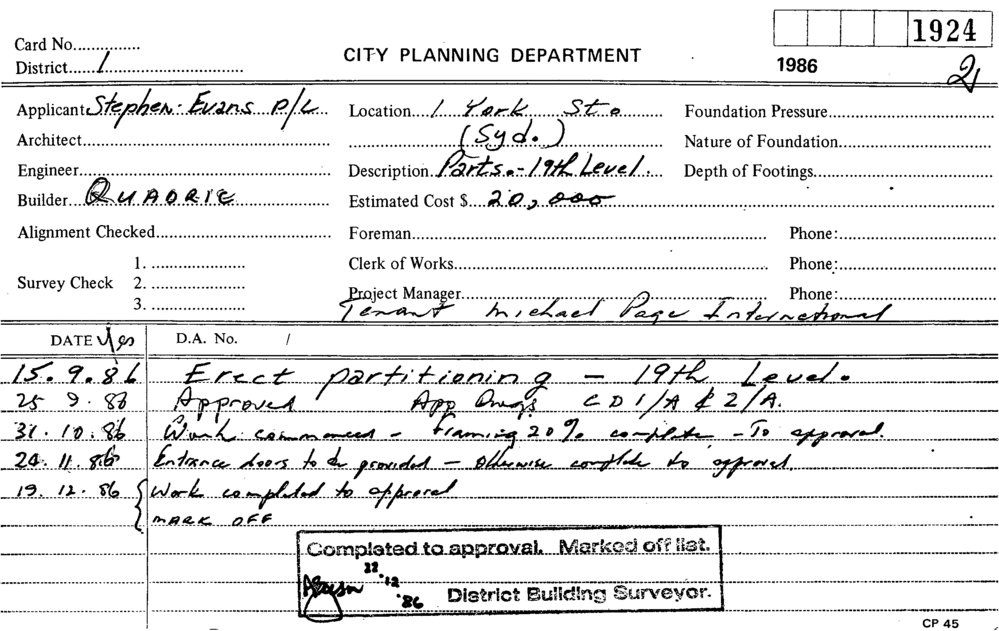 1924
Card No...............
CITY PLANNING DEPARTMENT
District.....1...............
1986
2
Applicant Stephen Evans P/L Location 1 York St. Foundation Pressure
Architect (Syd.) Nature of Foundation
Engineer Description Parts.-19th Level. Depth of Footings
Builder Estimated Cost $ 20,000
Alignment Checked Foreman Phone:
1. Clerk of Works Phone:
Survey Check 2.
3. Project Manager Phone:
Tenant Michael Page International
DATE Yes D.A. No. /
15.9.86 Erect partitioning - 19th Level.
25 9.86 Approved App Dwgs CD1/A & 2/A.
31.10.86 Work commenced - framing 20% complete - To approval.
24.11.86 Entrance doors to be provided - Otherwise complete to approval.
19.12.86 Work completed to approval
MARK OFF
Completed to approval. Marked off list.
22.12.86 District Building Surveyor.
CP 45